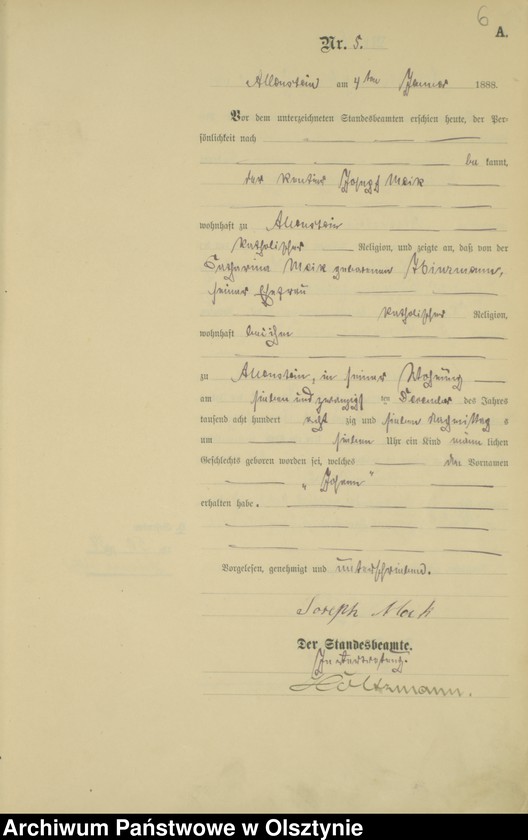 6
A.
Nr. 5.
Allenstein am 4ten Januar 1888.
Vor dem unterzeichneten Standesbeamten erschien heute, der Per-
sönlichkeit nach
be kannt,
der Rentier Joseph
wohnhaft zu Allenstein
katholischer Religion, und zeigte an, daß von der
Catharina geborenen
seiner Ehefrau
katholischer Religion,
wohnhaft bei ihm
zu Allenstein, in seiner Wohnung
am sieben und zwanzigsten Dezember des Jahres
tausend acht hundert acht zig und sieben Nachmittag s
um sieben Uhr ein Kind männ lichen
Geschlechts geboren worden sei, welches den Vornamen
„Johann“
erhalten habe.
Vorgelesen, genehmigt und unterschrieben.
Joseph
Der Standesbeamte.
In Vertretung.
Holtzmann.
Archiwum Państwowe w Olsztynie